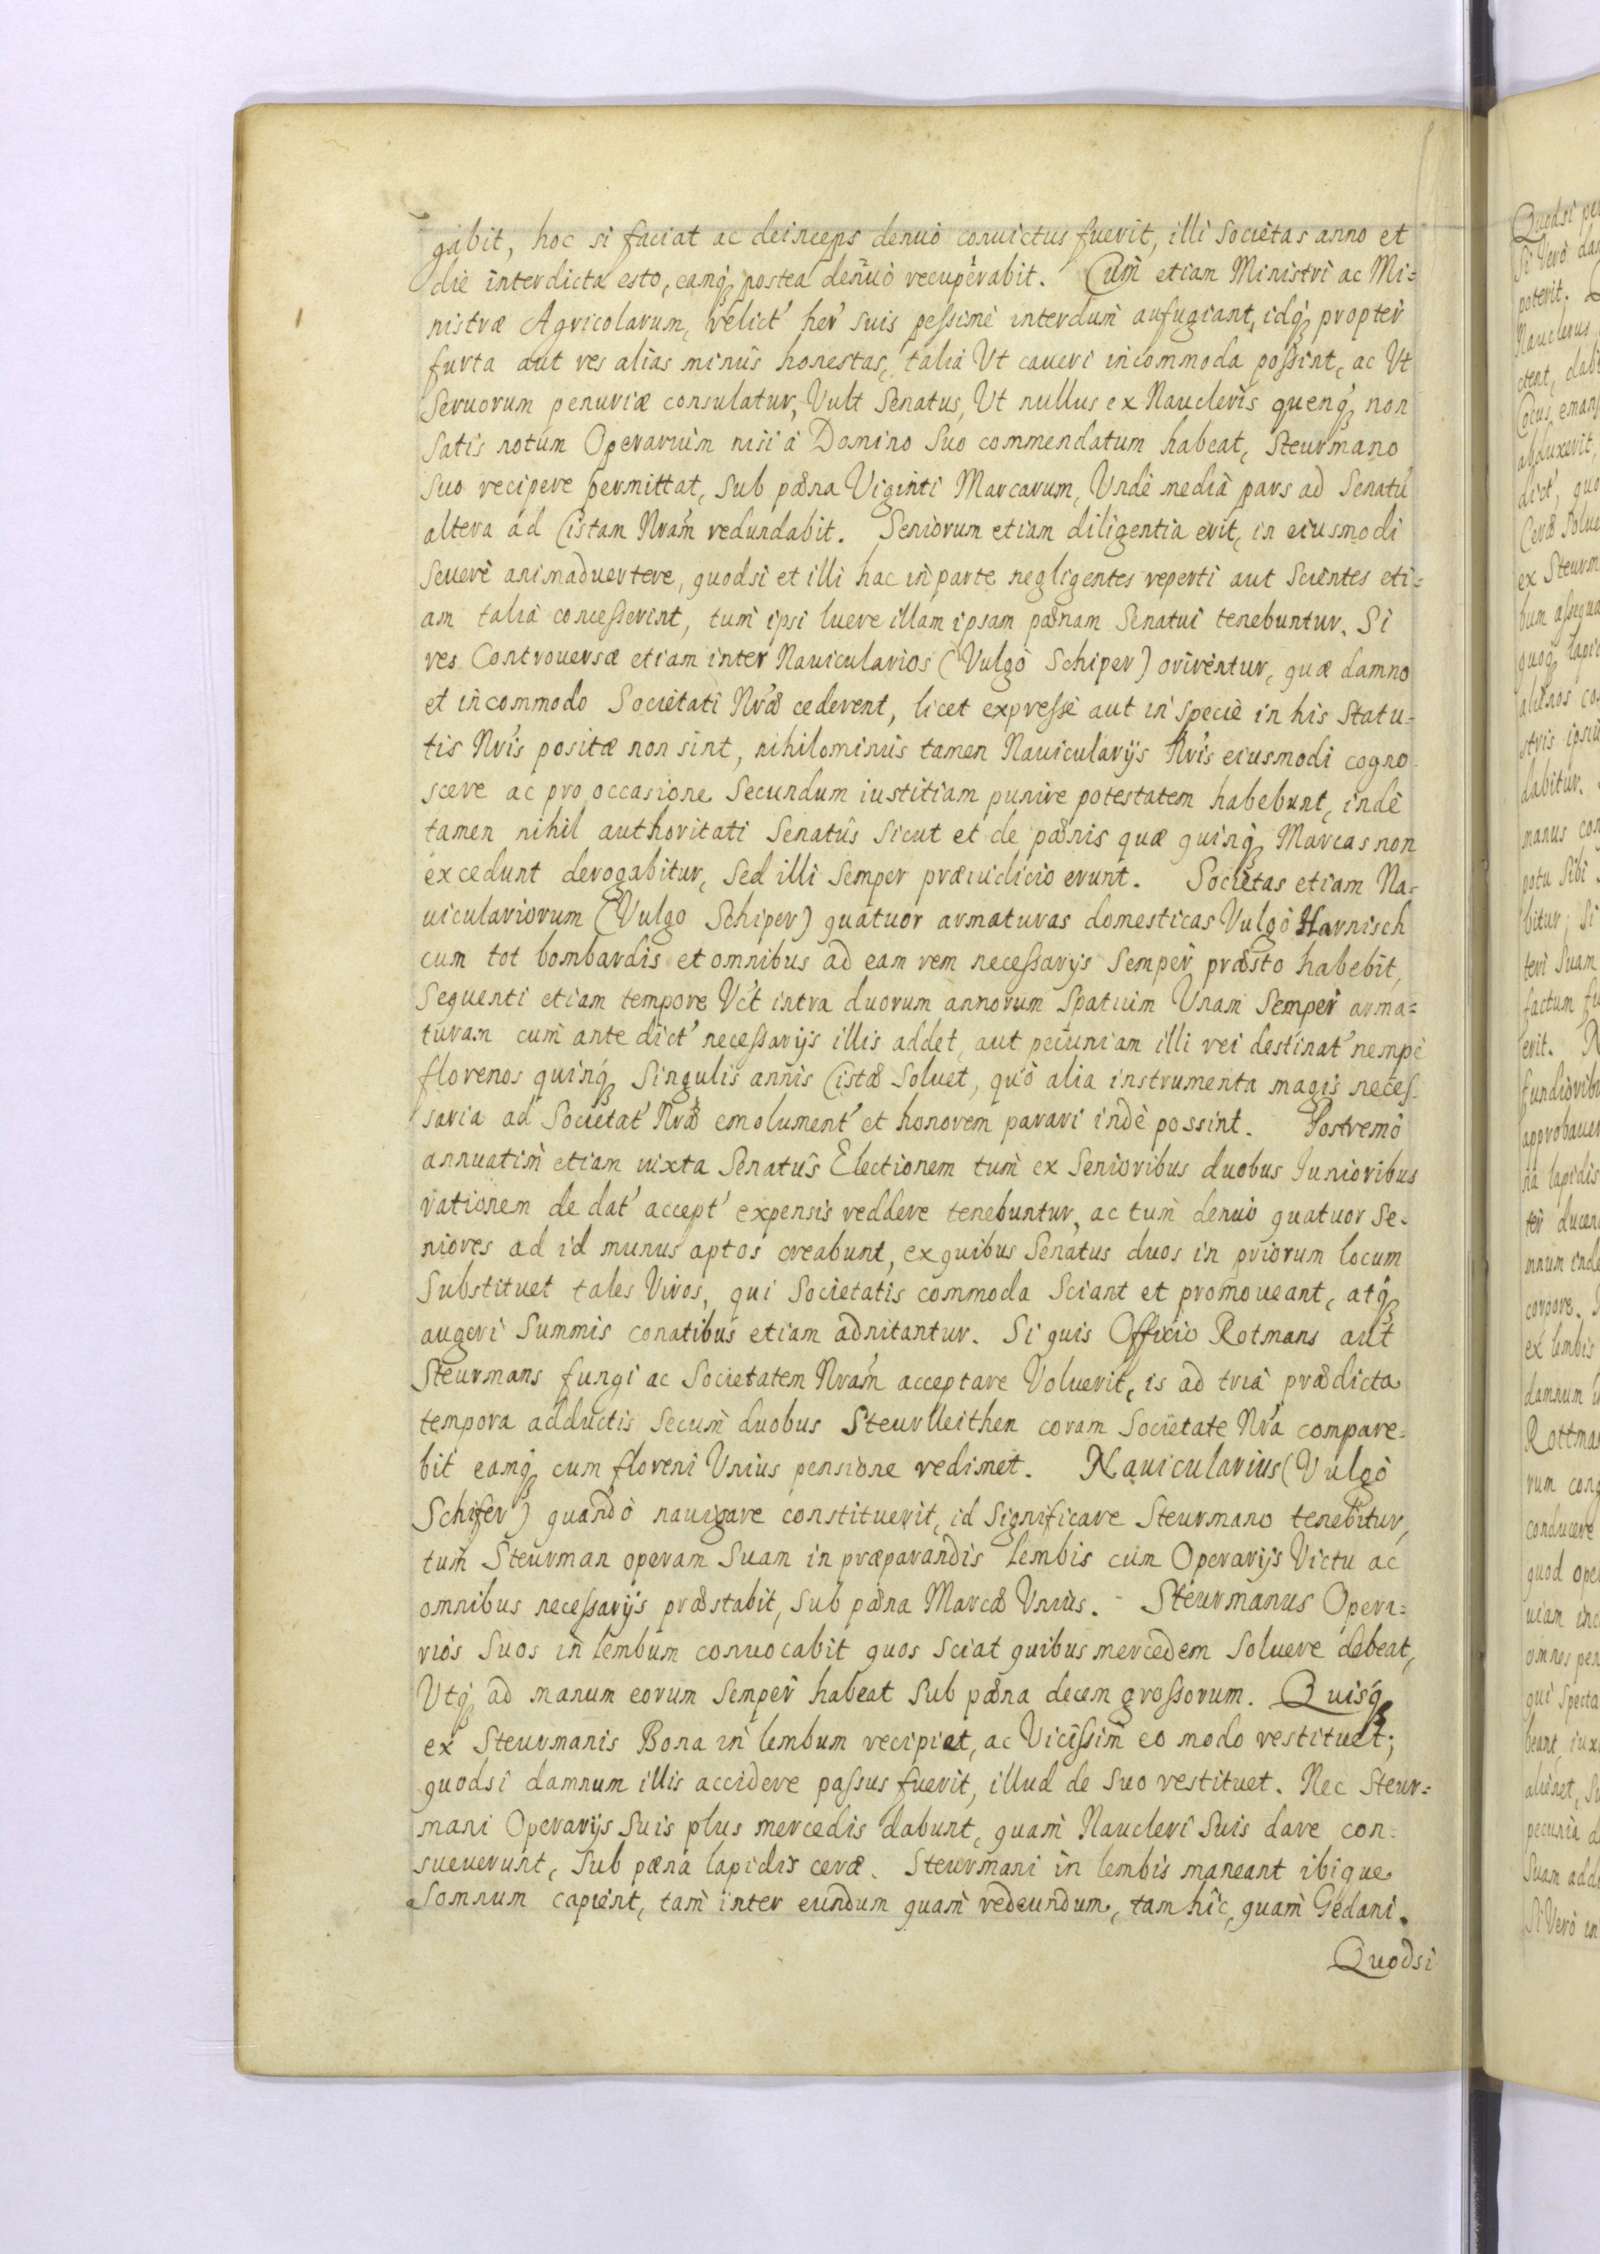 gabit, hoc si faciat ac deinceps denuò conuictus fuerit, illi Societas anno et
die interdicta esto, eamq; postea denuò recuperabit. Cum etiam Ministri ac Mi-
nistræ Agricolarum, relict' her' suis pessimè interdum aufugiant, idq; propter
furta aut res alias minùs honestas, talia Vt caueri incommoda possint, ac Vt
Seruorum penuriæ consulatur, Vult Senatus, Vt nullus ex Naucleris quenq; non
Satis notum Operarium nisi à Domino Suo commendatum habeat, Steurmano
Suo recipere permittat, Sub pæna Viginti Marcarum, Vndè media pars ad Senatū
altera ad Cistam Nram redundabit. Seniorum etiam diligentia erit, in eiusmodi
Seuerè animaduertere, quodsi et illi hac in parte negligentes reperti aut Scientes eti-
am talia concesserint, tum ipsi luere illam ipsam pænam Senatui tenebuntur. Si
res Controuersæ etiam inter Nauicularios (Vulgò Schiper) orirentur, quæ damno
et incommodo Societati Nræ cederent, licet expressè aut in Speciè in his Statu-
tis Nris positæ non sint, nihilominus tamen Nauicularijs Nris eiusmodi cogno-
scere ac pro occasione Secundum iustitiam punire potestatem habebunt, indè
tamen nihil authoritati Senatûs Sicut et de pænis quæ quinq; Marcas non
excedunt derogabitur, Sed illi Semper præiudicio erunt. Societas etiam Na-
uiculariorum (Vulgo Schiper) quatuor armaturas domesticas Vulgò Harnisch
cum tot bombardis et omnibus ad eam rem necessarijs Semper præsto habebit,
Sequenti etiam tempore Vt intra duorum annorum Spatium Vnam Semper arma-
turam cum ante dict' necessarijs illis addet, aut pecuniam illi rei destinat' nempè
florenos quinq; Singulis annis Cistæ Soluet, quò alia instrumenta magis neces-
saria ad Societat' Nræ emolument' et honorem parari indè possint. Postremò
annuatim etiam iuxta Senatûs Electionem tum ex Senioribus duobus Iunioribus
rationem de dat' accept' expensis reddere tenebuntur, ac tum denuò quatuor Se-
niores ad id munus aptos creabunt, ex quibus Senatus duos in priorum locum
Substituet tales Viros, qui Societatis commoda Sciant et promoueant, atq;
augeri Summis conatibus etiam adnitantur. Si quis Officio Rotmans aut
Steurmans fungi ac Societatem Nram acceptare Voluerit, is ad tria prædicta
tempora adductis Secum duobus Steurlleithen coram Societate Nra compare-
bit eamq; cum floreni Vnius pensione redimet. Nauicularius (Vulgò
Schifer) quandò nauigare constituerit, id Significare Steurmano tenebitur,
tum Steurman operam Suam in præparandis lembis cum Operarijs Victu ac
omnibus necessarijs præstabit, Sub pæna Marcæ Vnius. - Steurmanus Opera-
rios Suos in lembum conuocabit quos Sciat quibus mercedem Soluere debeat,
Vtq; ad manum eorum Semper habeat Sub pæna decem grossorum. Quisq;
ex Steurmanis Bona in lembum recipiet, ac Vicissim eo modo restituet;
quodsi damnum illis accidere passus fuerit, illud de Suo restituet. Nec Steur-
mani Operarijs Suis plus mercedis dabunt, quam Naucleri Suis dare con-
sueuerunt, Sub pæna lapidis ceræ. Steurmani in lembis maneant ibique
Somnum capient, tam inter eundum quam redeundum, tam hîc, quam Gedani.
Quodsi